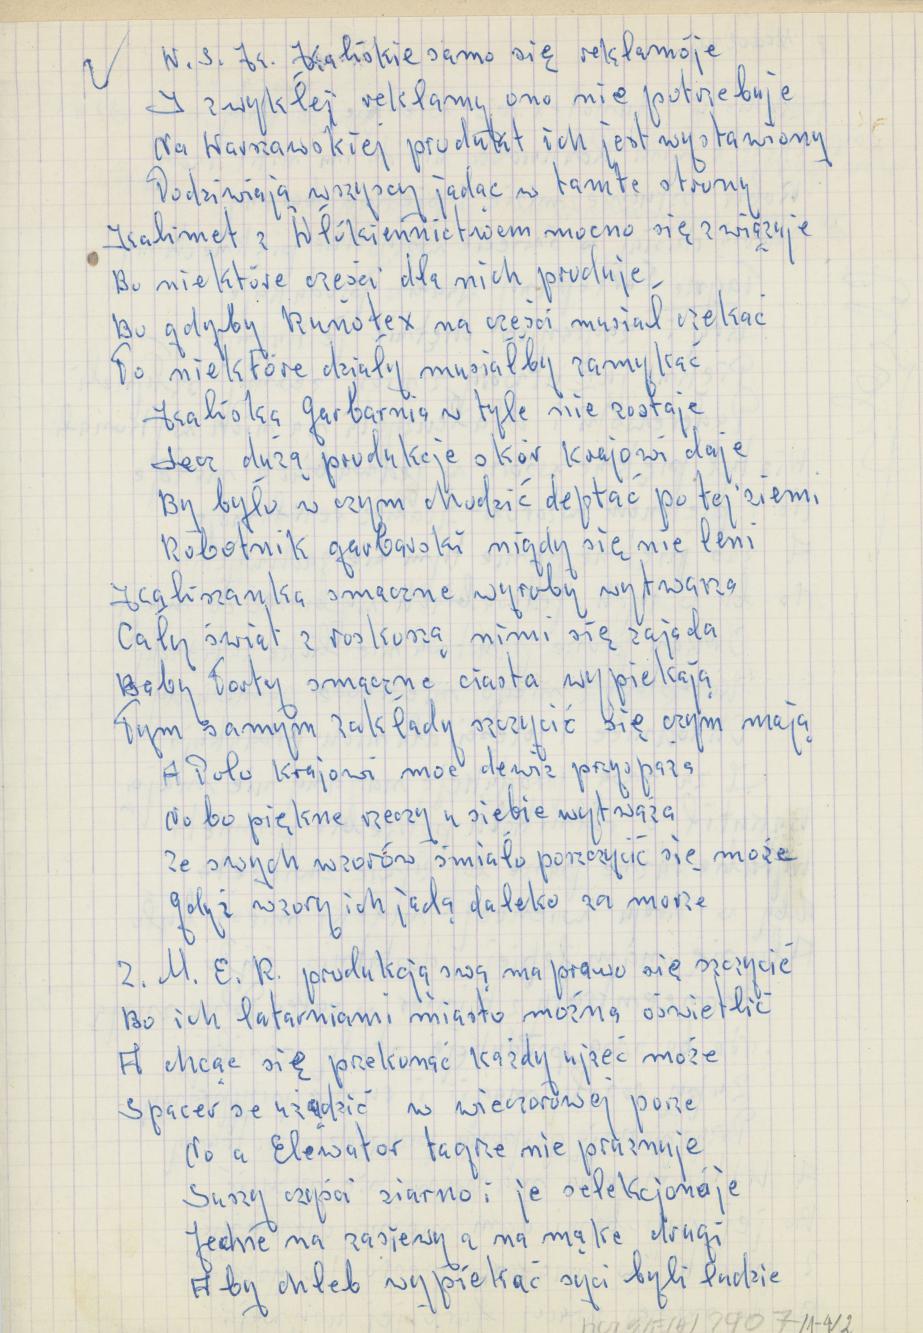 W. S. K. Kaliskie samo się reklamóje
I zwykłej reklamy ono nie potrzebuje
Na Warszawskiej produkt ich jest wystawiony
Podziwiają wszyscy jądąc w tamte strony
Kalimet z Włókiennictwem mocno się związuje
Bo niektóre części dla nich produje
Bo gdyby Runotex na części musiał czekać
To niektóre działy musiałby zamykać
Kaliska Garbarnia w tyle nie zostaje
Lecz dużą produkcje skór krajowi daje
By było w czym chodzić deptać po tej ziemi
Robotnik garbarski nigdy się nie leni
Kaliszanka smaczne wyroby wytwarza
Cały świat z roskoszą nimi się zajada
Baby Torty smaczne ciasta wypiekają
Tym samym zakłady szczycić się czym mają
A Polo krajowi moc dewiz przyspaża
No bo piękne rzeczy u siebie wytważa
Ze swych wzorów śmiało poszczycić się może
Gdyż wzory ich jadą daleko za morze
Z. M. E. R. produkcją swą ma prawo się szczycić
Bo ich latarniami miasto można oświetlić
A chcąc się przekonać każdy ujżeć może
Spacer se użądzić w wieczorowej porze
No a Elewator tagże nie prażnuje
Suszy czyści ziarno i je selekcjonóje
Jedne na zasiewy a na mąke drugi
A by chleb wypiekać syci byli ludzie